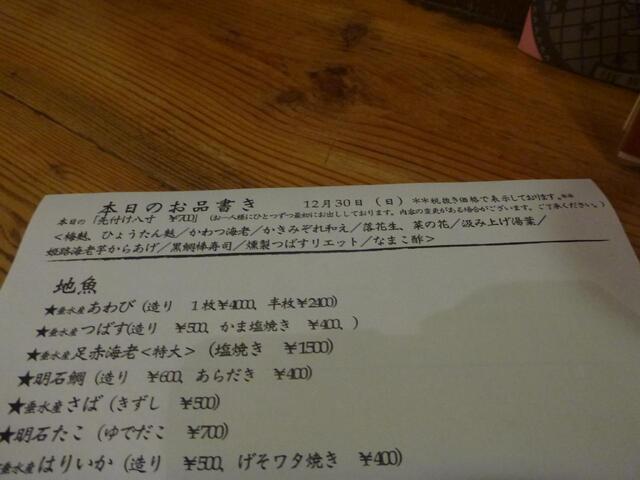 本日のお品書き　12月30日（日）＊＊税抜き価格で表示しております。＊＊
本日の「先付け八寸　¥700」（お一人様にひとつずつ最初にお出ししております。内容の変更がある場合がございます。ご了承ください。）
＜梅麩、ひょうたん麩／かわつ海老／かきみぞれ和え／落花生、菜の花／汲み上げ湯葉／
姫路海老芋からあげ／黒鯛棒寿司／燻製つばすリエット／なまこ酢＞
地魚
★垂水産あわび（造り　1枚¥4000、半枚¥2400）
★垂水産つばす（造り　¥500、かま塩焼き　¥400、）
★垂水産足赤海老＜特大＞（塩焼き　¥1500）
★明石鯛（造り　¥600、あらだき　¥400）
★垂水産さば（きずし　¥500）
★明石たこ（ゆでだこ　¥700）
垂水産はりいか（造り　¥500、げそワタ焼き　¥400）